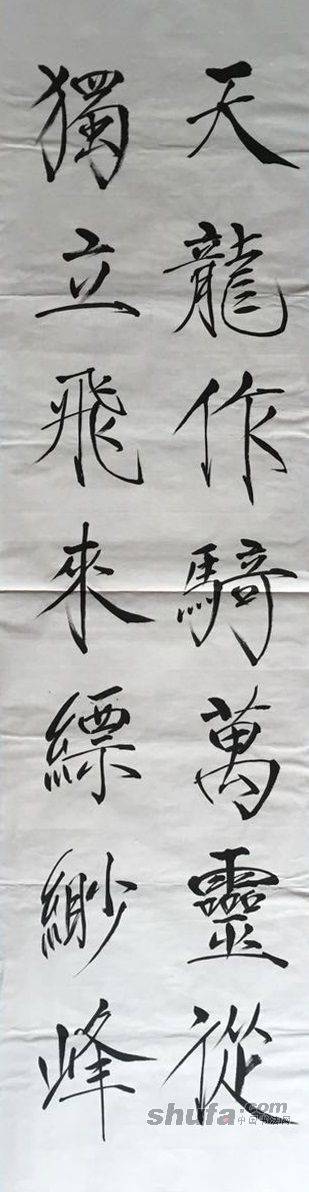 天龍作騎萬靈從
獨立飛來縹緲峰
shufa.com
中国书法网